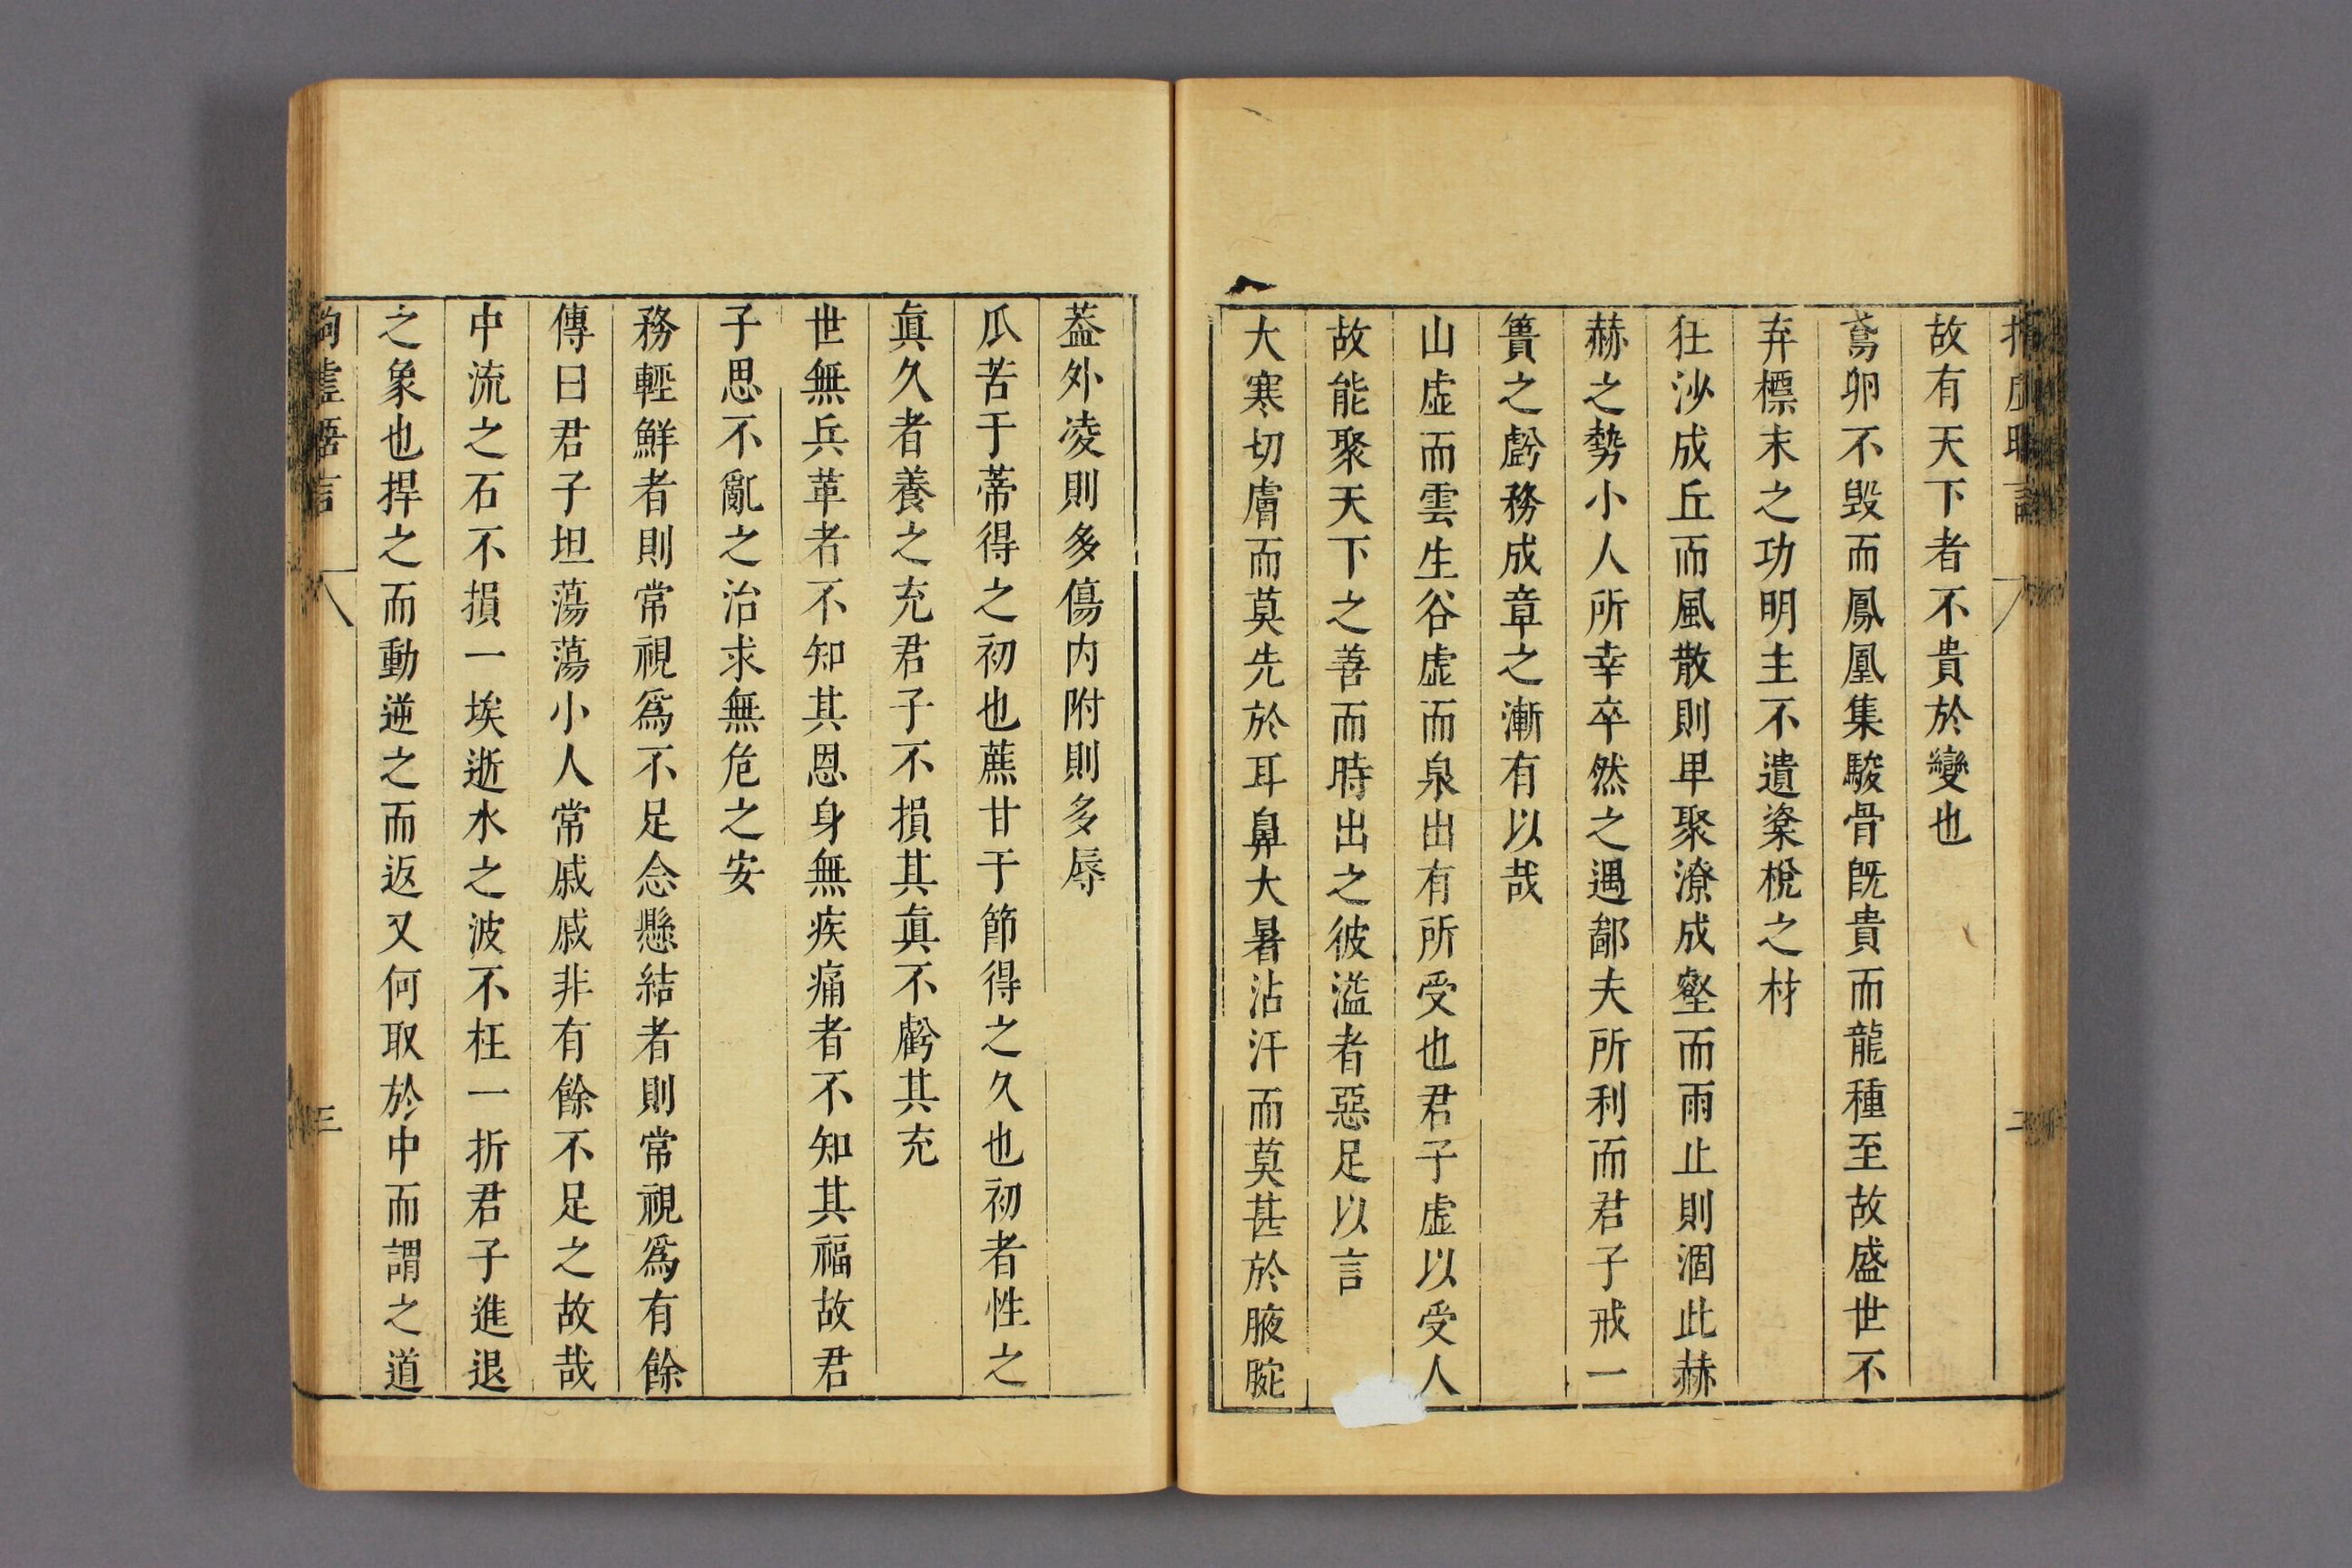 故有天下者不貴於變也
鳶卵不毀而鳳凰集駿骨旣貴而龍種至故盛世不
弃標末之功明主不遺楶梲之材
狂沙成丘而風散則卑聚潦成壑而雨止則涸此赫
赫之勢小人所幸卒然之遇鄙夫所利而君子戒一
簣之虧務成章之漸有以哉
山虛而雲生谷虛而泉出有所受也君子虛以受人
故能聚天下之善而時出之彼溢者惡足以言
大寒切膚而莫先於耳鼻大暑沾汗而莫甚於腋腕
葢外凌則多傷内附則多辱
瓜苦于蒂得之初也蔗甘于節得之久也初者性之
眞久者養之充君子不損其眞不虧其充
世無兵革者不知其恩身無疾痛者不知其福故君
子思不亂之治求無危之安
務輕鮮者則常視爲不足念懸結者則常視爲有餘
傳曰君子坦蕩蕩小人常戚戚非有餘不足之故哉
中流之石不損一埃逝水之波不枉一折君子進退
之象也捍之而動逆之而返又何取於中而謂之道
三